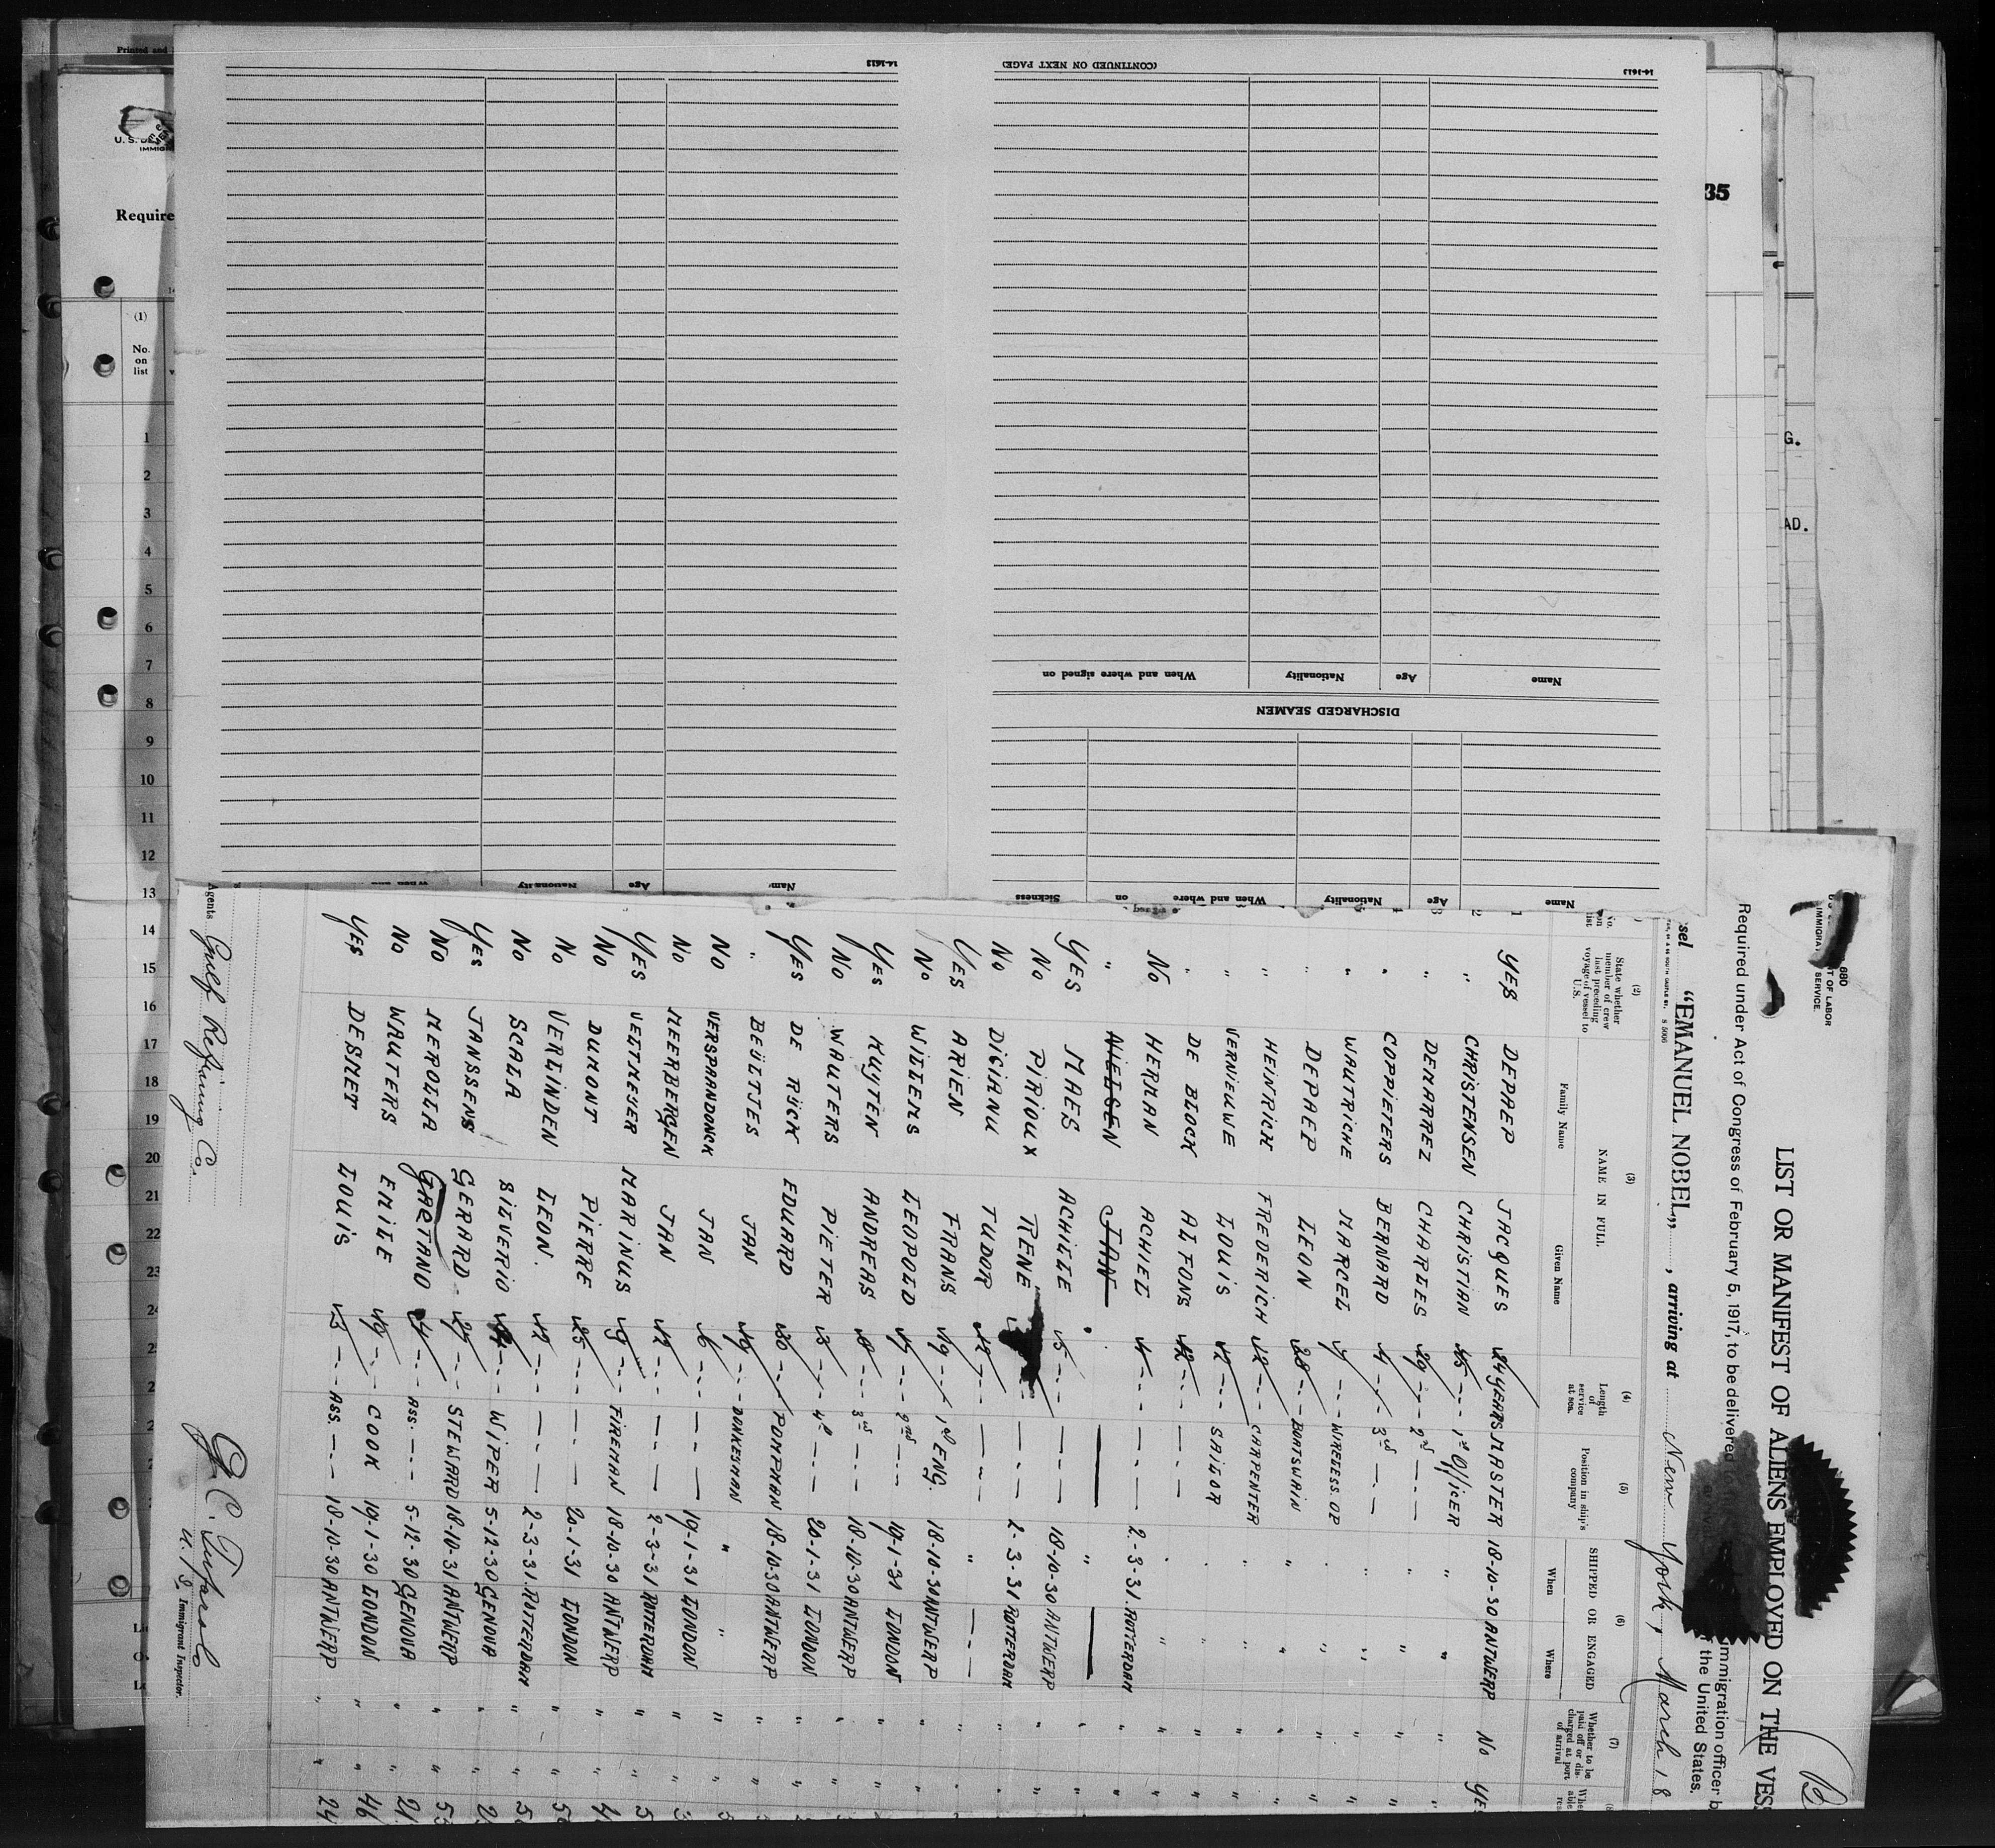 Printed and
U. S. DE
IMMIG
Require
(1)
No.
on
list
1
2
3
4
5
6
7
8
9
10
11
12
13
14
15
16
17
18
19
20
21
22
23
24
35
G.
AD.
14-1613
(CONTINUED ON NEXT PAGE)
14-1613
Name
Age
Nationality
When and where signed on
DISCHARGED SEAMEN
Name
Age
Nationality
When and where
on
Sickness
Name
Age
Nationality
680
T OF LABOR
IMMIGRA SERVICE
B
LIST OR MANIFEST OF ALIENS EMPLOYED ON THE VES
Required under Act of Congress of February 5, 1917, to be delivered
immigration officer b
f the United States.
sel "EMANUEL NOBEL", arriving at New York, March 18
(2) (3) (4) (5) (6) (7)
No. on list
State whether member of crew last preceding voyage of vessel to U.S.
NAME IN FULL
Family Name Given Name
Length of service at sea.
Position in ship's company
SHIPPED OR ENGAGED
When Where
Whether to be paid off or discharged at port of arrival
1 YES DEPAEP JACQUES 24 YEARS MASTER 18-10-30 ANTWERP No YE
2 " CHRISTENSEN CHRISTIAN 1st OFFICER " "
3 " DEMARREZ CHARLES 29 2nd " "
4 " COPPIETERS BERNARD 4 3rd " "
" WAUTRICHE MARCEL WIRELESS OP " "
" DEPAEP LEON 28 BOATSWAIN " "
" HEINRICH FREDERICH 12 CARPENTER " "
" VERNIEUWE LOUIS 12 SAILOR " "
" DE BLOCK ALFONS 12 " "
No HERMAN ACHIEL 2-3-31 ROTTERDAM
" NIELSEN JAN
YES MAES ACHILLE 5 18-10-30 ANTWERP
No PIRIOUX RENE 2-3-31 ROTTERDAM
No DICIANU TUDOR 12 "
YES ARIEN FRANS 19 1st ENG. 18-10-30 ANTWERP
No WILLEMS LEOPOLD 2nd 19-1-31 LONDON
YES KUYTEN ANDREAS 3rd 18-10-30 ANTWERP
No WAUTERS PIETER 4th 20-1-31 LONDON
YES DE RÜCK EDUARD 20 POMPMAN 18-10-30 ANTWERP
" BEÜLTJES JAN DONKEYMAN " "
No VERSPRANDONCK JAN 6 19-1-31 LONDON
No MEERBERGEN JAN 12 2-3-31 ROTTERDAM
YES VELTMEYER MARINUS 9 FIREMAN 18-10-30 ANTWERP
No DUMONT PIERRE 25 20-1-31 LONDON
No VERLINDEN LEON. 12 2-3-31 ROTTERDAM
No SCALA SILVERIO WIPER 5-12-30 GENOVA
YES JANSSENS GERARD STEWARD 18-10-31 ANTWERP
No MEROLLA GAETANO ASS. 5-12-30 GENOVA
No WAUTERS EMILE 19 COOK 19-1-30 LONDON 46
YES DESMET LOUIS 3 ASS. 18-10-30 ANTWERP 24
Agents Gulf Refining Co.
U. S. Immigrant Inspector.